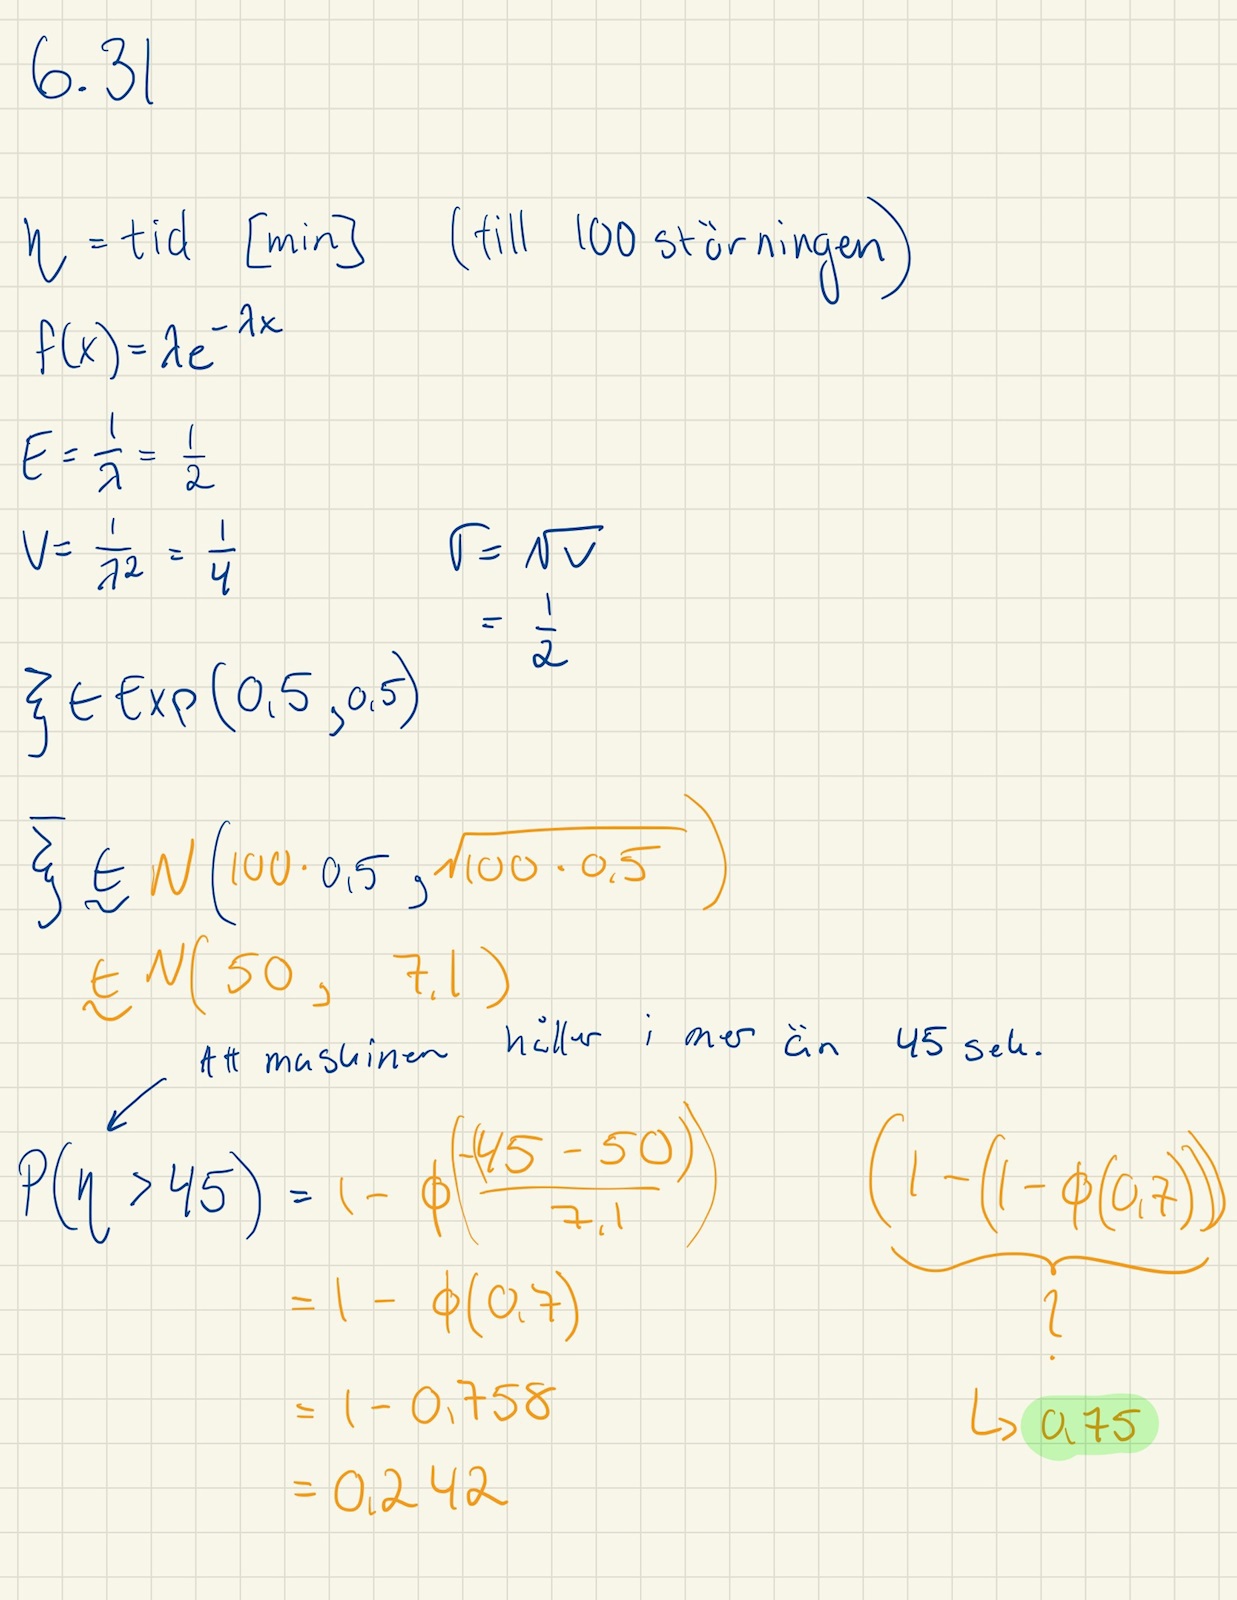 6.31
η = tid [min] (till 100 störningen)
f(x) = λe^{-λx}
E = 1/λ = 1/2
V = 1/λ² = 1/4
σ = √V
= 1/2
ξ ∈ Exp(0,5, 0,5)
ξ̄ ∈̰ N(100 · 0,5, √(100 · 0,5))
∈̰ N(50, 7,1)
Att maskinen håller i mer än 45 sek.
P(η > 45) = 1 - ϕ(-(45 - 50)/7,1)
(1 - (1 - ϕ(0,7)))
= 1 - ϕ(0,7)
?
= 1 - 0,758
↳ 0,75
= 0,242